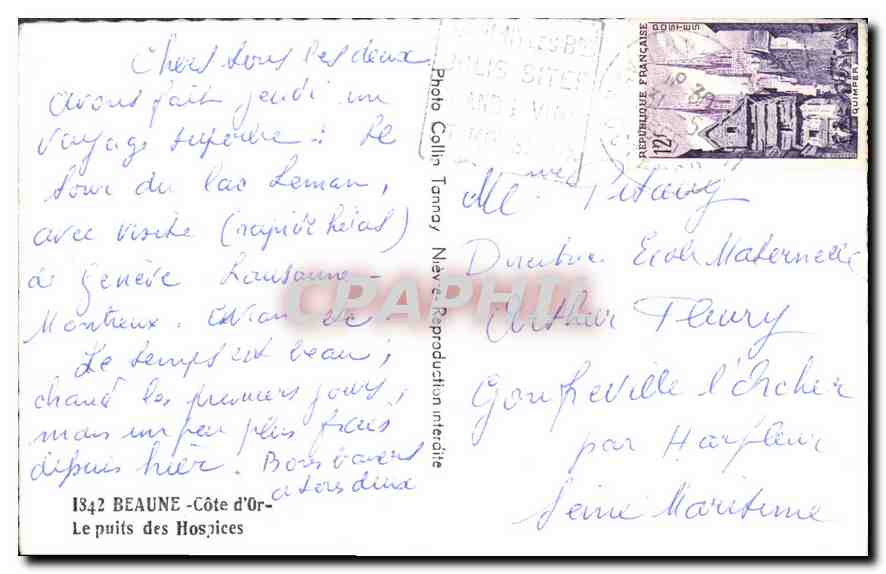 Chers tous les deux
avons fait jeudi un
voyage superbe : le
tour du lac Leman,
avec visite (rapide hélas)
de Genève Lausanne -
Montreux. Evian etc
Le temps est beau,
chaud les premiers jours,
mais un peu plus frais
depuis hier. Bons baisers
a tous deux
1342 BEAUNE -Côte d'Or-
Le puits des Hospices
Photo Collin Tannay Nièvre-Reproduction interdite
REPUBLIQUE FRANÇAISE
POSTES
12F
QUIMPER
Me
Directrice Ecole Maternelle
Arthur Fleury
Gonfreville l'Orcher
par Harfleur
Seine Maritime
CPAPHIL